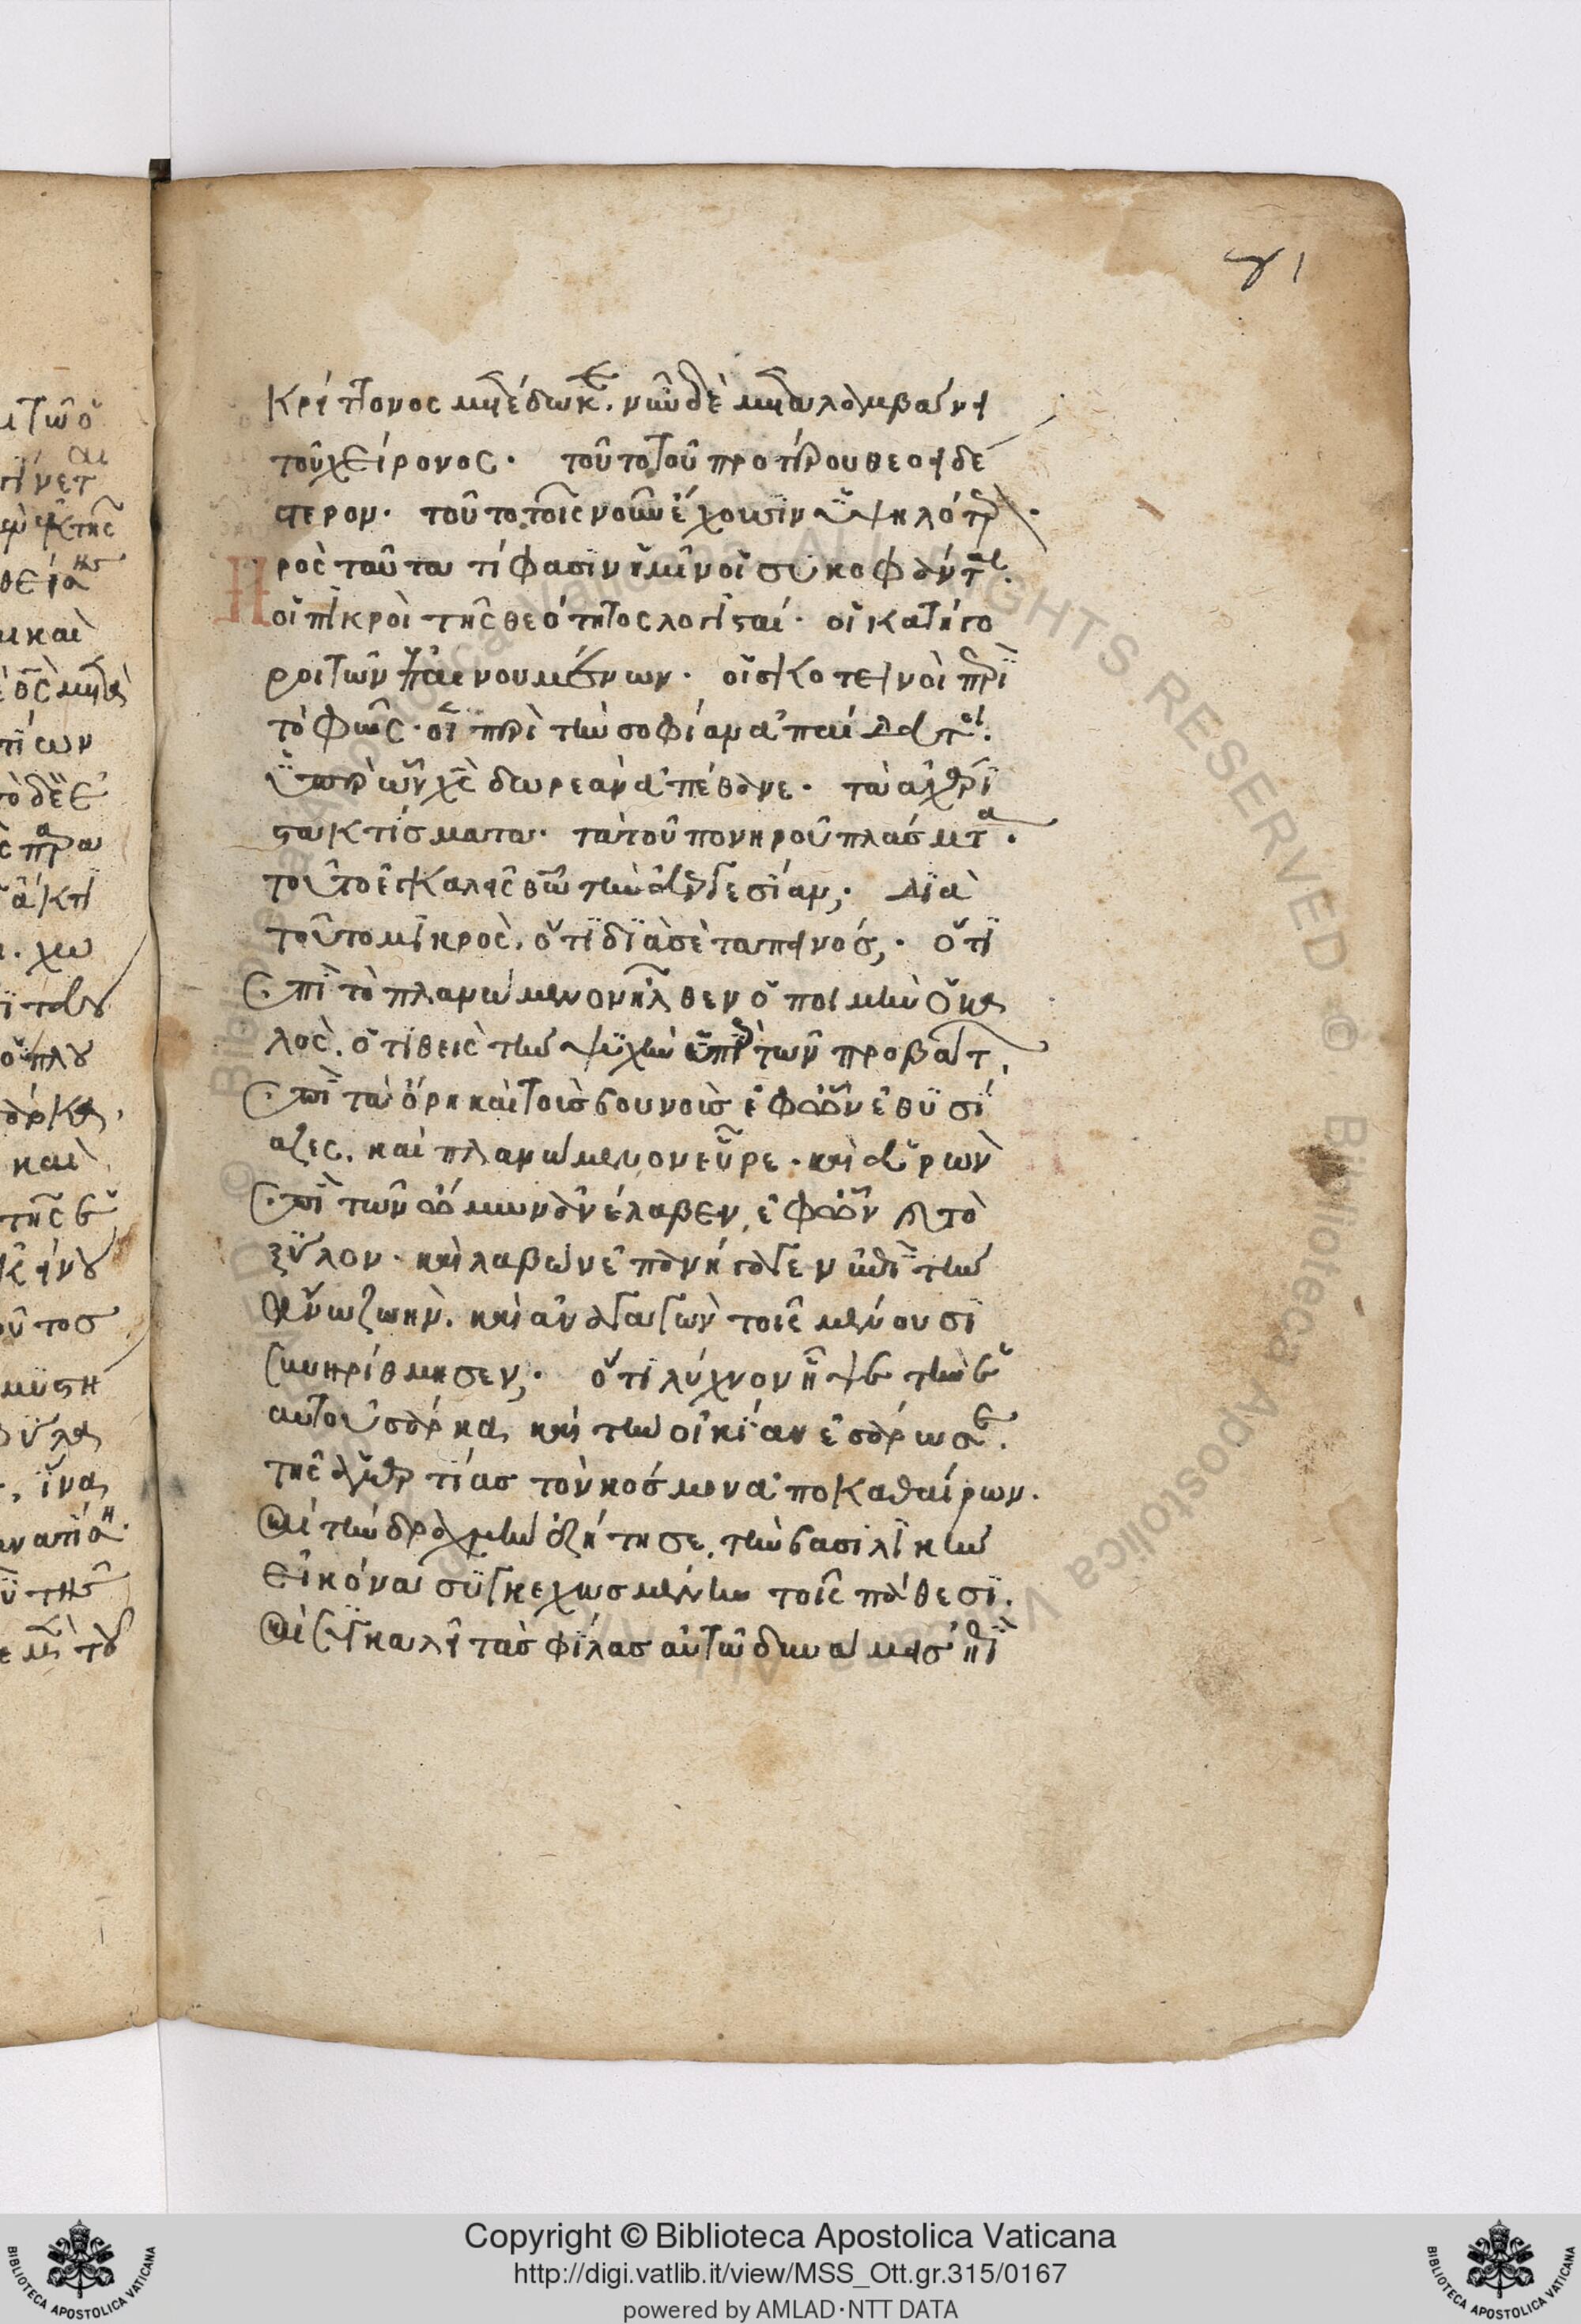 κρείττονος μετέδωκε. νῦν δὲ μεταλαμβάνει
τοῦ χείρονος. τοῦτο τοῦ προτέρου θεοειδέ
στερον. τοῦτο τοῖς νοῦν ἔχουσιν ὑψηλότερον.
Πρὸς ταῦτα τί φασιν ἡμῖν οἱ συκοφάνται.
οἱ πικροὶ τῆς θεότητος λογισταί. οἱ κατήγο
ροι τῶν ἐπαινουμένων. οἱ σκοτεινοὶ περὶ
τὸ φῶς. οἱ περὶ τὴν σοφίαν ἀπαίδευτοι.
ὑπὲρ ὧν χς δωρεὰν ἀπέθανε. τὰ ἀχάρι
στα κτίσματα. τὰ τοῦ πονηροῦ πλάσματα.
τοῦτο ἐγκαλεῖς θῶ τὴν εὐεργεσίαν; διὰ
τοῦτο μικρὸς. ὅτι διὰ σὲ ταπεινός; ὅτι
ἐπὶ τὸ πλανώμενον ἦλθεν ὁ ποιμὴν ὁ κα
λὸς. ὁ τιθεὶς τὴν ψυχὴν ὑπὲρ τῶν προβάτων.
ἐπὶ τὰ ὄρη καὶ τοὺς βουνοὺς ἐφ' ὧν ἐθυσί
αζες. καὶ πλανώμενον εὗρε. καὶ εὑρὼν
ἐπὶ τῶν ὤμων ἀνέλαβεν, ἐφ' ὧν καὶ τὸ
ξύλον. καὶ λαβὼν ἐπανήγαγεν ἐπὶ τὴν
ἄνω ζωήν. καὶ ἀναγαγὼν τοῖς μένουσι
συνηρίθμησεν; ὅτι λύχνον ἧψε τὴν ἑ
αυτοῦ σάρκα, καὶ τὴν οἰκίαν ἐσάρωσε.
τῆς ἁμαρτίας τὸν κόσμον ἀποκαθαίρων.
καὶ τὴν δραχμὴν ἐζήτησε. τὴν βασιλικὴν
εἰκόνα συγκεχωσμένην τοῖς πάθεσι.
καὶ συγκαλεῖ τὰς φίλας αὐτῶ δυνάμεις ἐπὶ
Copyright © Biblioteca Apostolica Vaticana
http://digi.vatlib.it/view/MSS_Ott.gr.315/0167
powered by AMLAD·NTT DATA